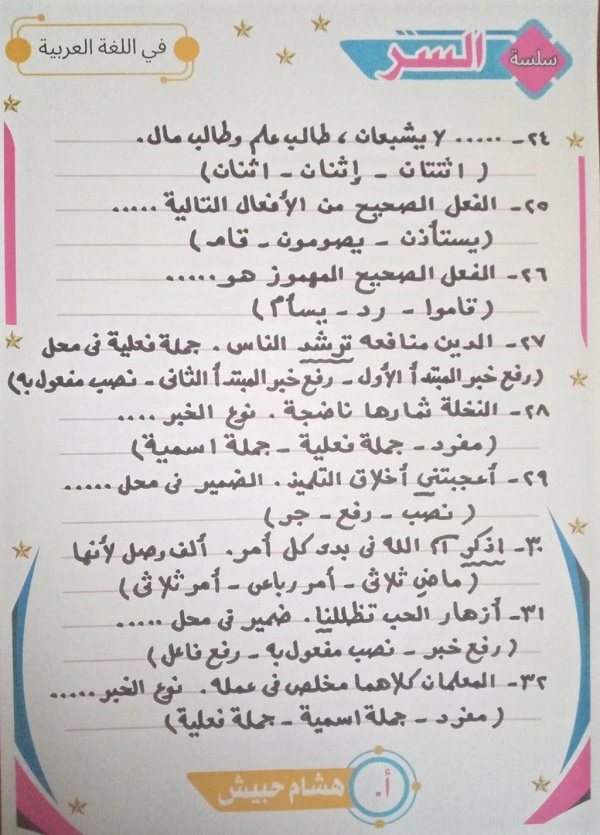 سلسلة السر
في اللغة العربية
٢٤- ..... لا يشبعان ، طالب علم وطالب مال.
( اثنتان - إثنان - اثنان )
٢٥- الفعل الصحيح من الأفعال التالية .....
( يستأذن - يصومون - قام )
٢٦- الفعل الصحيح المهموز هو .....
( قاموا - رد - يسأم )
٢٧- الدين منافعه ترشد الناس . جملة فعلية فى محل
( رفع خبر المبتدأ الأول - رفع خبر المبتدأ الثانى - نصب مفعول به )
٢٨- النخلة ثمارها ناضجة . نوع الخبر ....
( مفرد - جملة فعلية - جملة اسمية )
٢٩- أعجبتني أخلاق التلميذ . الضمير فى محل .....
( نصب - رفع - جر )
٣٠- اذكر الله فى بدء كل أمر . ألف وصل لأنها
( ماضٍ ثلاثى - أمر رباعى - أمر ثلاثى )
٣١- أزهار الحب تظللنا . ضمير فى محل .....
( رفع خبر - نصب مفعول به - رفع فاعل )
٣٢- المعلمان كلاهما مخلص فى عمله . نوع الخبر .....
( مفرد - جملة اسمية - جملة فعلية )
أ. هشام حبيش